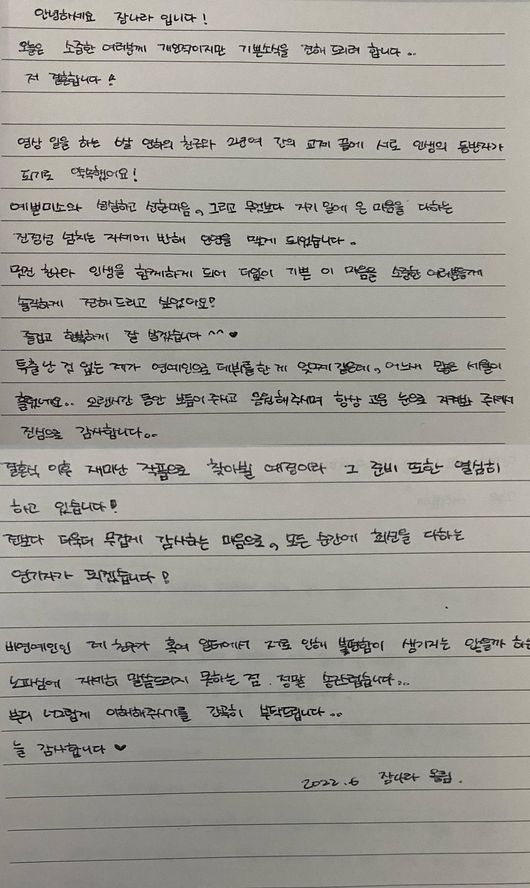 안녕하세요 장나라 입니다!
오늘은 소중한 여러분께 개인적이지만 기쁜소식을 전해 드리려 합니다..
저 결혼합니다!
영상 일을 하는 6살 연하의 친구와 2년여 간의 교제 끝에 서로 인생의 동반자가
되기로 약속했어요!
예쁜미소와 성실하고 선한마음, 그리고 무엇보다 자기 일에 온 마음을 다하는
진정성 넘치는 자세에 반해 인연을 맺게 되었습니다.
멋진 친구와 인생을 함께하게 되어 더없이 기쁜 이 마음을 소중한 여러분들께
솔직하게 전해드리고 싶었어요!
즐겁고 행복하게 잘 살겠습니다 ^^ ♥
특출난 것 없는 제가 연예인으로 데뷔를 한 게 엊그제 같은데, 어느새 많은 세월이
흘렀네요.. 오랜시간 동안 보듬어 주시고 응원해주시며 항상 고운 눈으로 지켜봐 주셔서
진심으로 감사합니다..
결혼식 이후 재미난 작품으로 찾아뵐 예정이라 그 준비 또한 열심히
하고 있습니다!
전보다 더욱더 무겁게 감사하는 마음으로, 모든 순간에 최선을 다하는
연기자가 되겠습니다!
비연예인인 제 친구가 혹여 일터에서 저로 인해 불편함이 생기지는 않을까 하는
노파심에 자세히 말씀드리지 못하는 점. 정말 송구스럽습니다..
부디 너그럽게 이해해주시기를 간곡히 부탁드립니다..
늘 감사합니다 ♥
2022.6 장나라 올림.